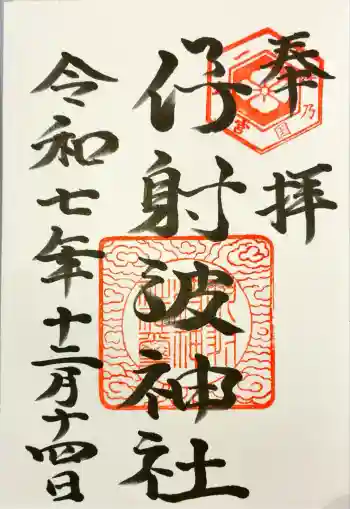 奉拝
伊射波神社
令和七年十二月十四日
一
乃
宮
国